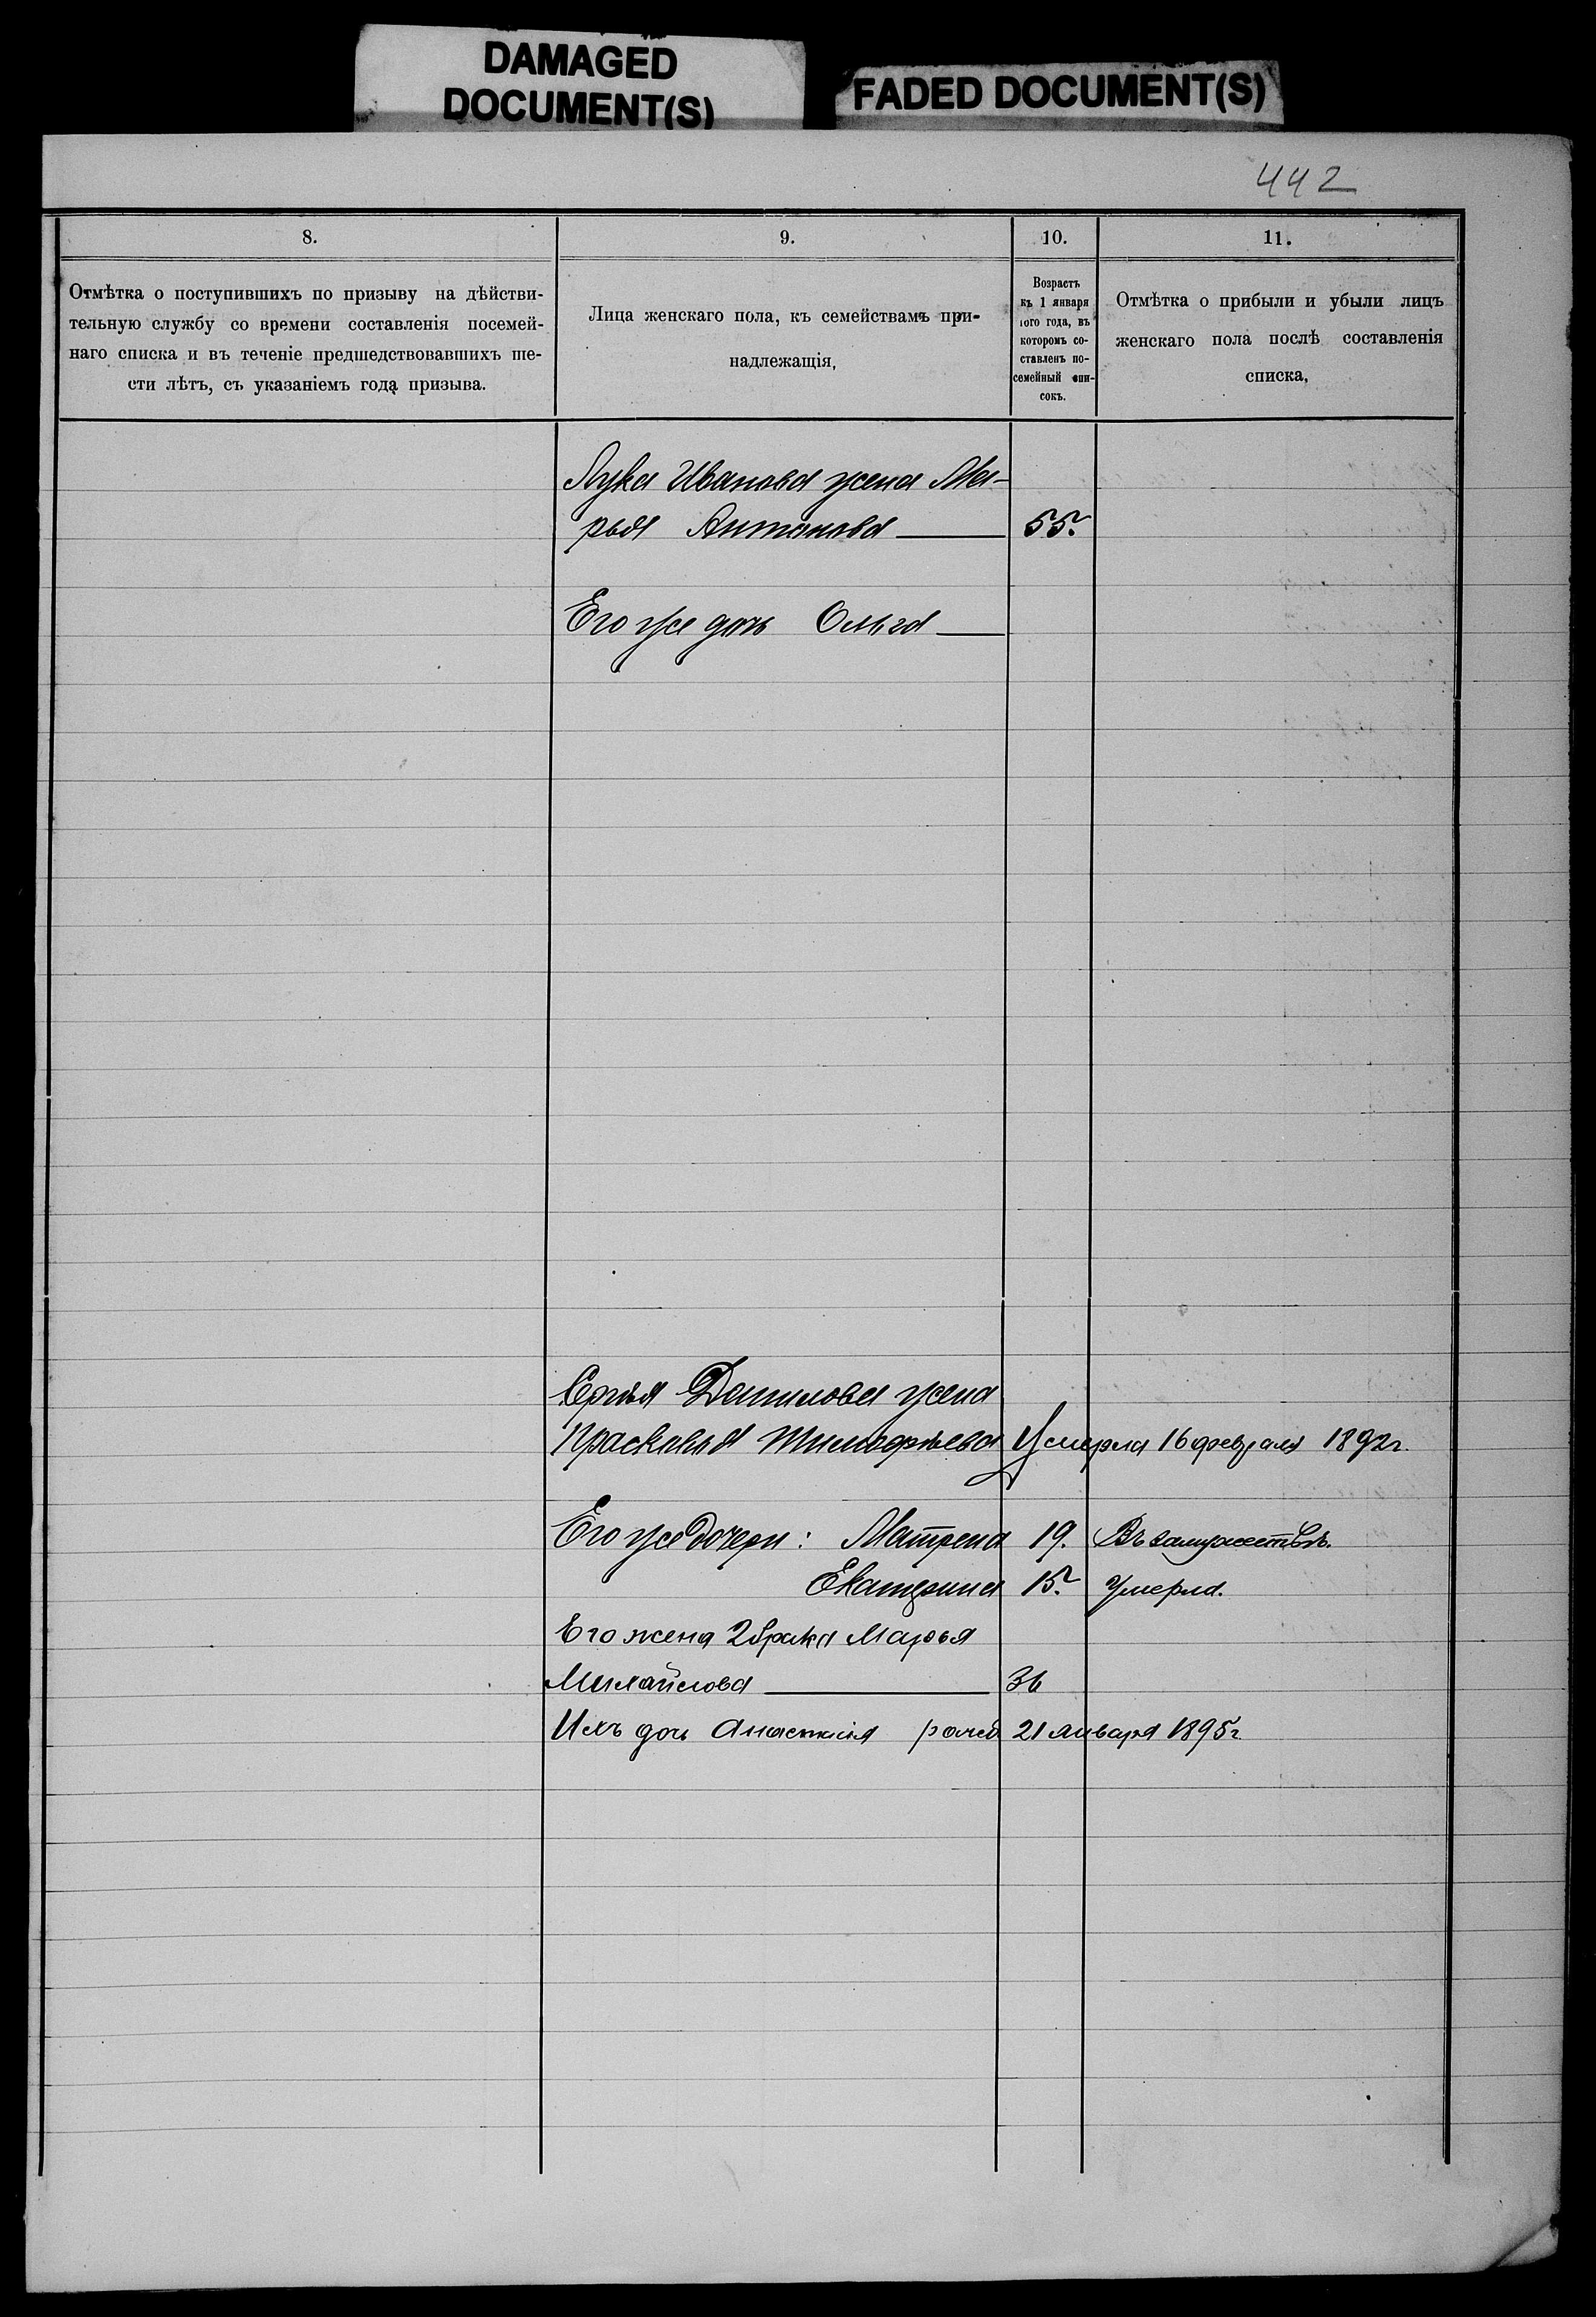 DAMAGED
DOCUMENT(S)
FADED DOCUMENT(S)
442
8.
9.
10.
11.
Отмѣтка о поступившихъ по призыву на дѣйстви-
тельную службу со времени составленія посемей-
наго списка и въ теченіе предшедствовавшихъ ше-
сти лѣтъ, съ указаніемъ года призыва.
Лица женскаго пола, къ семействамъ при-
надлежащія,
Возрастъ
къ 1 января
того года, въ
которомъ со-
ставленъ по-
семейный спи-
сокъ.
Отмѣтка о прибыли и убыли лицъ
женскаго пола послѣ составленія
списка,
Лука Иванова жена Ма-
рья Антонова 55.
Его же дочь Ольга
Сергѣя Данилова жена
Прасковья Тимофѣева Умерла 16 февраля 1892 г.
Его же дочери: Матрена 19. Въ замужествѣ.
Екатерина 15. Умерла.
Его жена 2 брака Марья
Михайлова 36
Ихъ дочь Анастасія рожд 21 января 1895 г.